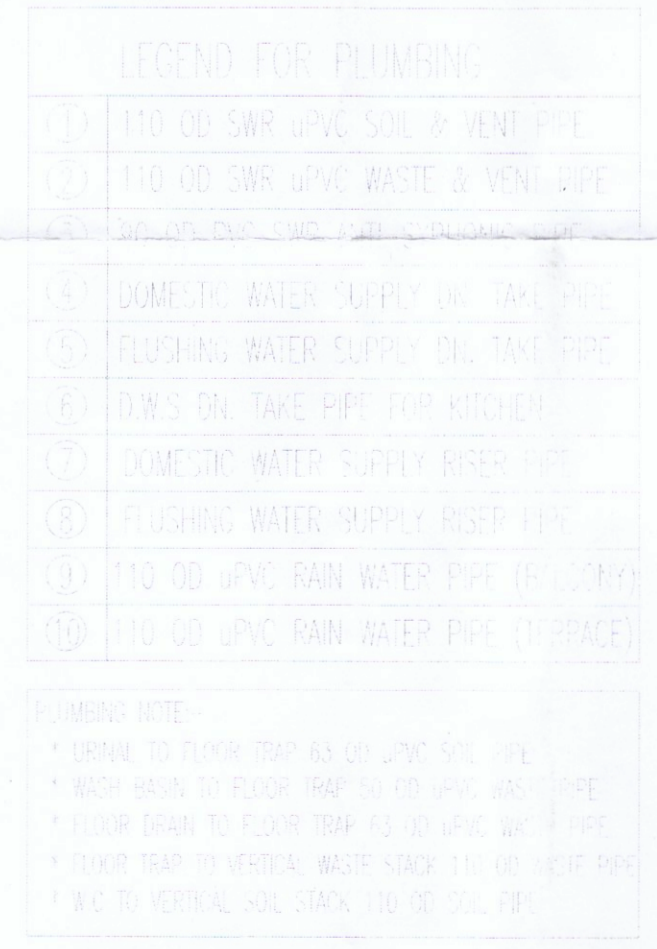 LEGEND FOR PLUMBING
1 110 OD SWR uPVC SOIL & VENT PIPE
2 110 OD SWR uPVC WASTE & VENT PIPE
3 90 OD PVC SWR ANTI SYPHONIC PIPE
4 DOMESTIC WATER SUPPLY DN. TAKE PIPE
5 FLUSHING WATER SUPPLY DN. TAKE PIPE
6 D.W.S DN. TAKE PIPE FOR KITCHEN
7 DOMESTIC WATER SUPPLY RISER PIPE
8 FLUSHING WATER SUPPLY RISER PIPE
9 110 OD uPVC RAIN WATER PIPE (BALCONY)
10 110 OD uPVC RAIN WATER PIPE (TERRACE)
PLUMBING NOTE:-
* URINAL TO FLOOR TRAP 63 OD uPVC SOIL PIPE
* WASH BASIN TO FLOOR TRAP 50 OD uPVC WASTE PIPE
* FLOOR DRAIN TO FLOOR TRAP 63 OD uPVC WASTE PIPE
* FLOOR TRAP TO VERTICAL WASTE STACK 110 OD WASTE PIPE
* W.C TO VERTICAL SOIL STACK 110 OD SOIL PIPE